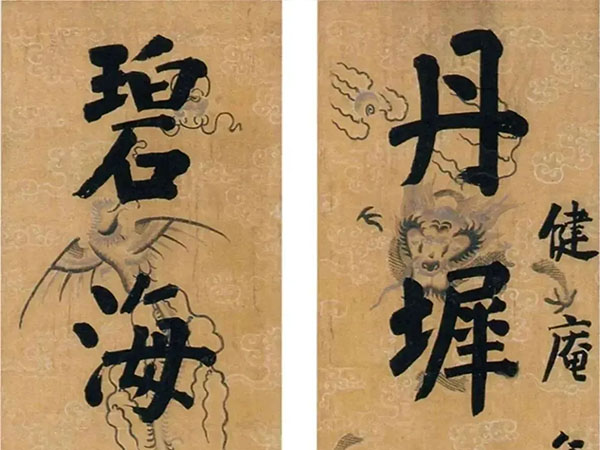 健庵
丹墀
碧海